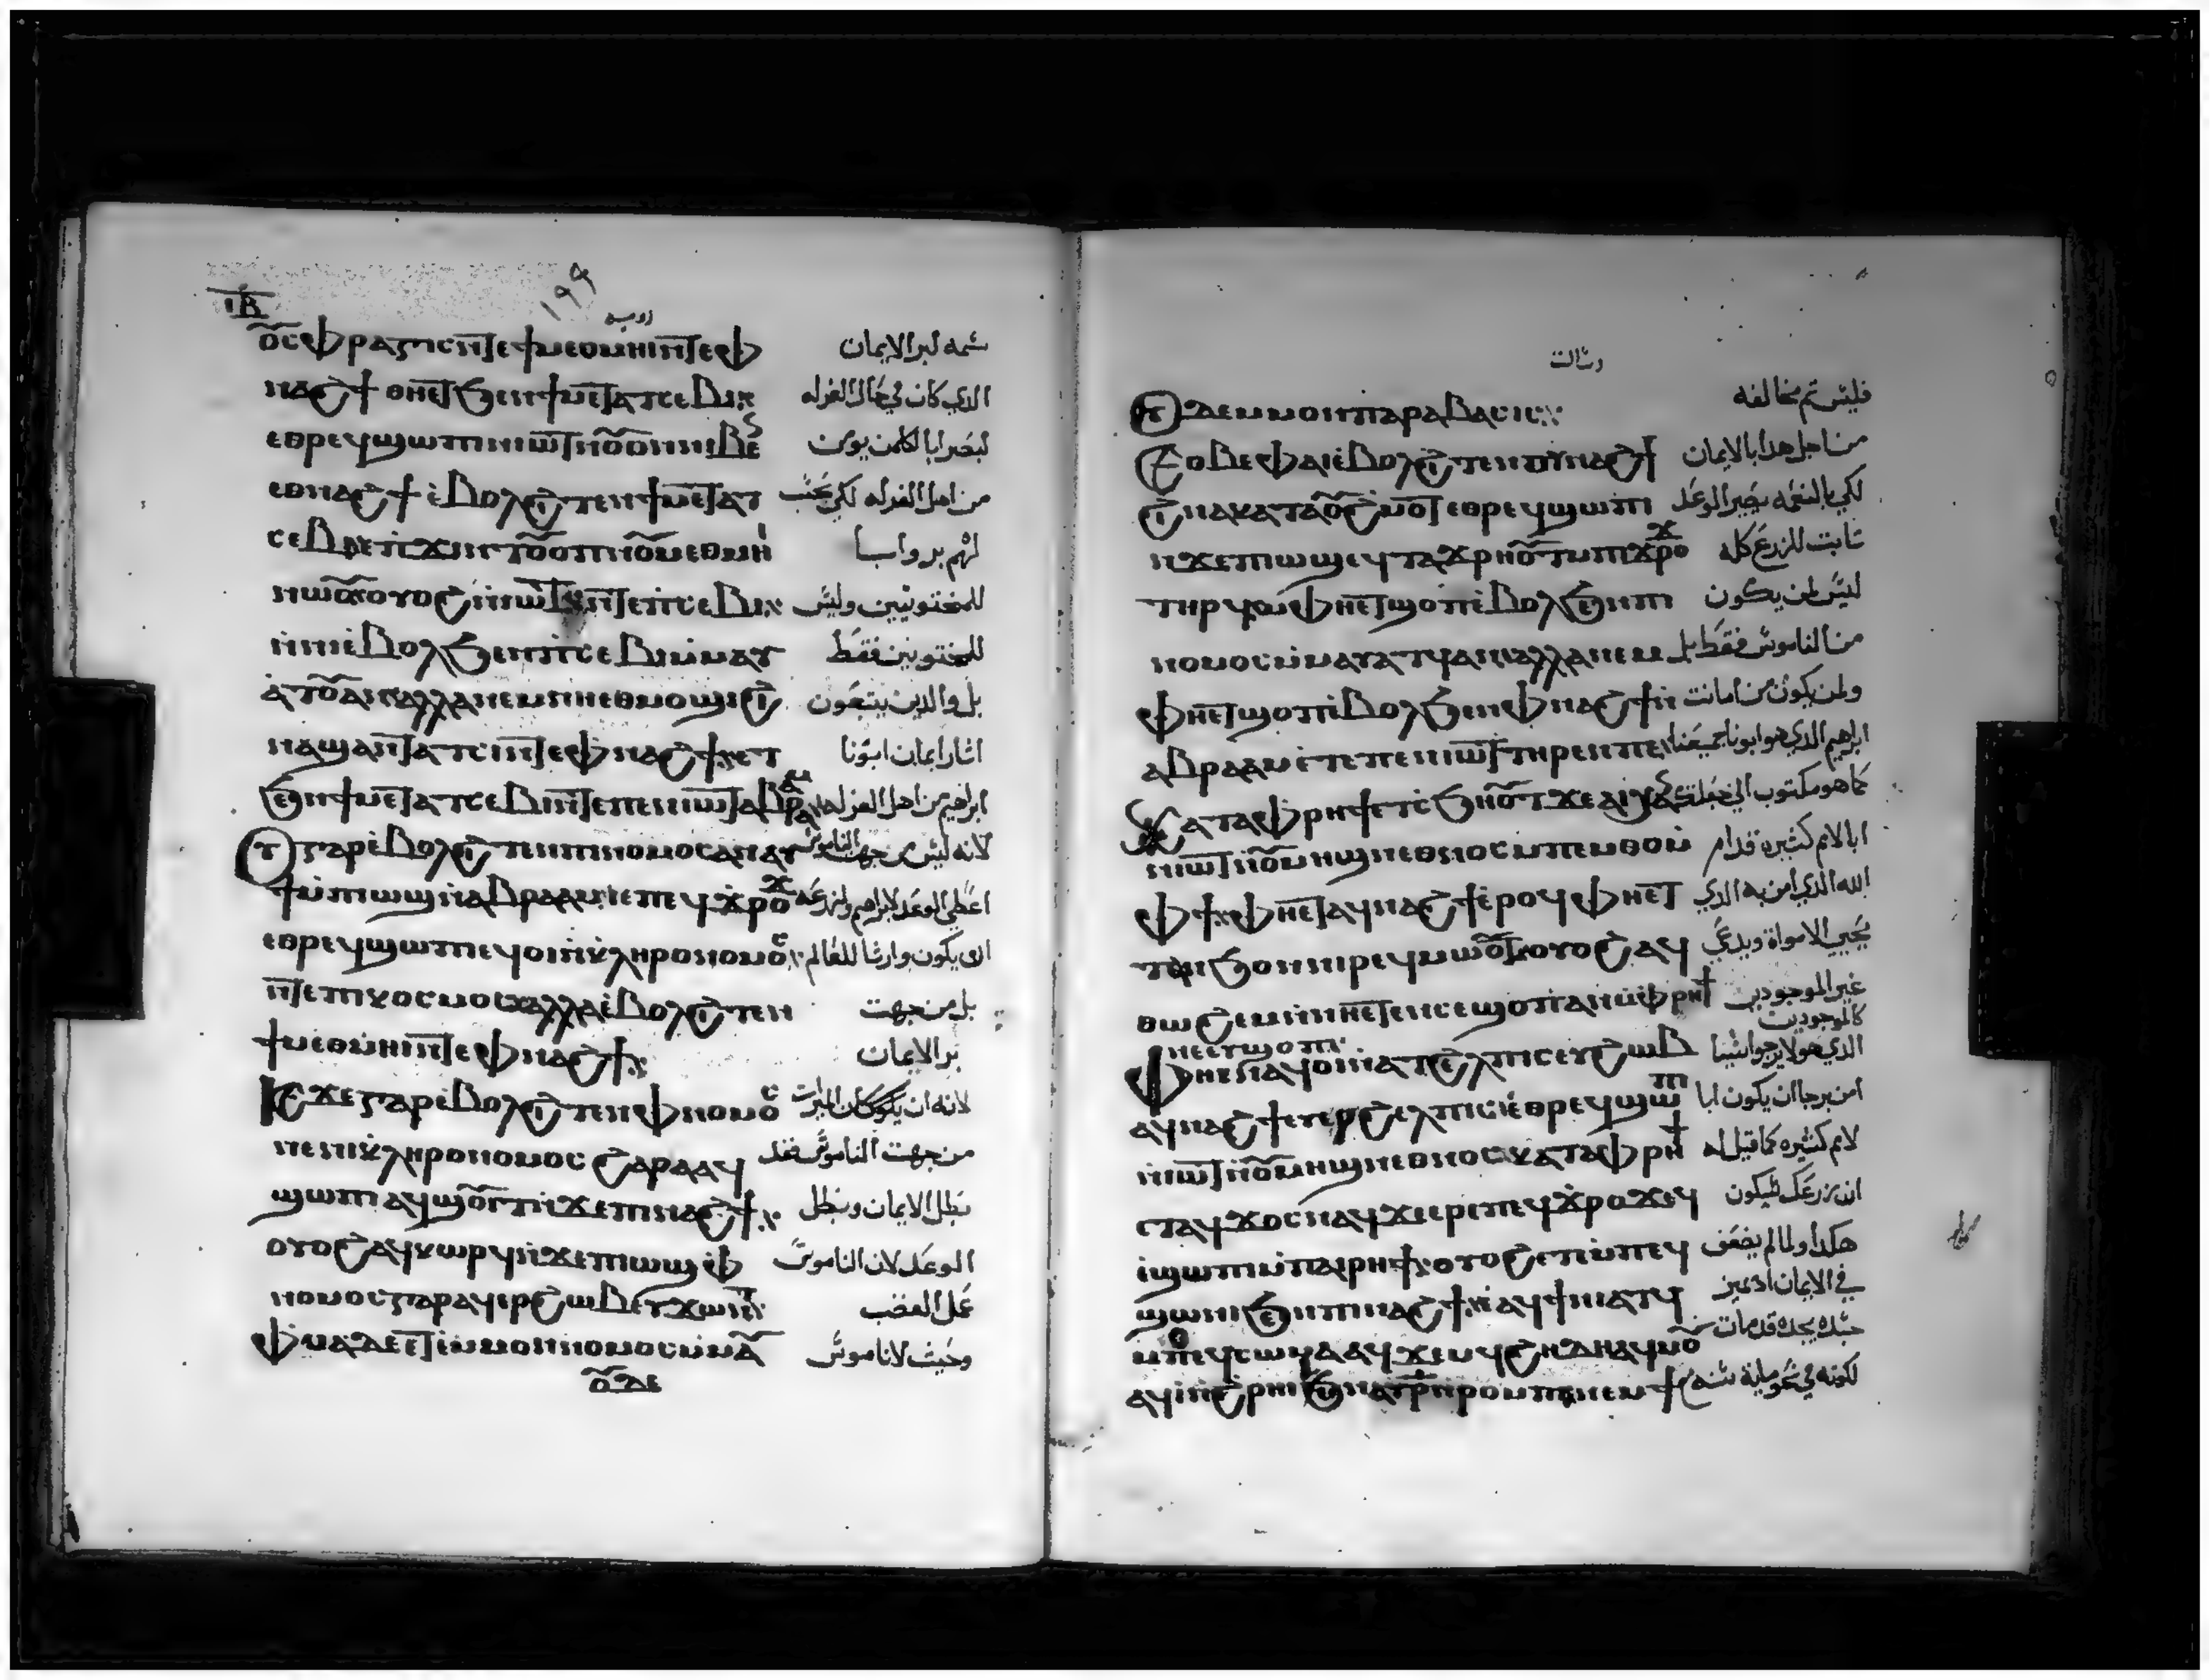 ⲓⲃ
١٩٩
ⲟ̅ⲥⲫⲣⲁⲅⲓⲥⲛ̅ⲧⲉϯⲙⲉⲑⲙⲏⲓⲛ̅ⲧⲉⲫ لبر الايمان
ⲛⲁϩϯ ⲑⲏⲉ̅ⲧϧⲉⲛϯⲙⲉ̅ⲧⲁⲧⲥⲉⲃⲓ الدي كان في حال الغرله
ⲉⲑⲣⲉϥϣⲱⲡⲓⲛⲓⲱ̅ⲧⲛⲟ̅ⲩⲟⲛⲛⲓⲃⲉ ليصير ابا لكلمن يومن
ⲉⲑⲛⲁϩϯⲉ̀ⲃⲟⲗϩⲓⲧⲉⲛϯⲙⲉ̅ⲧⲁⲧ من اهل الغرله لكي
ⲥⲉⲃⲓ لهم بر وابا
ⲛⲱ̅ⲟⲩⲟⲩⲟϩⲛ̀ⲓⲱ̅ⲧⲛ̅ⲧⲉⲡⲥⲉⲃⲓ للمختونيين وليس
ⲛ̀ⲛⲓⲉ̀ⲃⲟⲗϧⲉⲛⲡⲥⲉⲃⲓⲙ̀ⲙⲁⲩ للمختونين فقط
ⲁ̀ⲧⲟ̅ⲩⲁⲛⲁⲗⲗⲁⲛⲉⲙⲛⲏⲉⲑⲙⲟϣⲓϩⲓ بل والدين يتبعون
ⲛⲁϣⲉⲛ̅ⲧⲁⲧⲥⲓⲛ̅ⲧⲉⲫⲛⲁϩϯⲉⲧ اثار ايمان ابونا
ϧⲉⲛϯⲙⲉ̅ⲧⲁⲧⲥⲉⲃⲓⲛ̅ⲧⲉⲡⲉⲛⲓⲱ̅ⲧⲁⲃⲣⲁⲁⲙ ابراهيم من اهل الغرله
ⲟⲩⲅⲁⲣⲉ̀ⲃⲟⲗϩⲓⲧⲉⲛⲡⲓⲛⲟⲙⲟⲥⲁⲛⲁⲩ لانه ليس من جهت الناموس
ϯⲙ̀ⲡⲓⲱϣⲛ̀ⲁⲃⲣⲁⲁⲙⲓⲉⲡⲉϥϫⲣⲟϫ اعطي الوعد لابراهيم ولزرعه
ⲉⲑⲣⲉϥϣⲱⲡⲉϥⲟⲓⲛ̀ⲕⲗⲏⲣⲟⲛⲟⲙⲟⲥ ان يكون وارثا للعالم
ⲛ̅ⲧⲉⲡⲓⲕⲟⲥⲙⲟⲥⲁⲗⲗⲁⲉ̀ⲃⲟⲗϩⲓⲧⲉⲛ بل من جهت
ϯⲙⲉⲑⲙⲏⲓⲛ̅ⲧⲉⲫⲛⲁϩϯ بر الايمان
ⲓⲥϫⲉⲅⲁⲣⲉ̀ⲃⲟⲗϩⲓⲧⲉⲛⲫⲛⲟⲙⲟⲥ لانه ان
ⲡⲉⲡⲓⲕⲗⲏⲣⲟⲛⲟⲙⲟⲥ ϩⲁⲣⲁⲁϥ من جهت الناموس فقد
ϣⲱⲡⲓⲁϥϣⲟ̅ⲩⲓⲧⲛ̀ϫⲉⲡⲓⲛⲁϩϯ بطل الايمان وبطل
ⲟⲩⲟϩⲁϥⲕⲱⲣϥⲛ̀ϫⲉⲡⲓⲱϣⲫ الوعد لان الناموس
ⲛⲟⲙⲟⲥⲅⲁⲣⲁϥⲉⲣϩⲱⲃⲉⲩϫⲱⲛ̅ⲧ عمل الغضب
ⲫⲙⲁⲇⲉⲉ̅ⲧⲉⲙ̀ⲙⲟⲛⲛⲟⲙⲟⲥⲙ̀ⲙⲁ وحيث لاناموس
ⲟ̅ⲩⲇⲉ
ⲟⲩⲇⲉⲙⲙⲟⲛⲡⲁⲣⲁⲃⲁⲥⲓⲥ فليس ثم مخالفه
ⲉⲑⲃⲉⲫⲁⲓⲉ̀ⲃⲟⲗϩⲓⲧⲉⲛⲟⲩⲛⲁϩϯ من اجل هدا بالايمان
ϩⲓⲛⲁⲕⲁⲧⲁⲟ̅ⲩϩⲙⲟ̅ⲧⲉⲑⲣⲉϥϣⲱⲡⲓ لكي بالنعمه يصير الوعد
ⲛϫⲉⲡⲓⲱϣⲉϥⲧⲁϫⲣⲏⲟ̅ⲩⲧⲙⲡⲓϫⲣⲟϫ تابت للزرع كله
ⲧⲏⲣϥⲟⲩⲙⲫⲏⲉ̅ⲧϣⲟⲡⲉ̀ⲃⲟⲗϧⲉⲛⲡⲓ ليس لمن يكون
ⲛⲟⲙⲟⲥⲙ̀ⲙⲁⲩⲁⲧϥⲁⲛⲁⲗⲗⲁⲛⲉⲙ من الناموس فقط بل
ⲫⲏⲉ̅ⲧϣⲟⲡⲉ̀ⲃⲟⲗϧⲉⲛⲫⲛⲁϩϯⲛ̀ ولمن يكون من امانت
ⲁⲃⲣⲁⲁⲙⲉ̀ⲧⲉⲡⲉⲛⲓⲱ̅ⲧⲧⲏⲣⲉⲛⲡⲉ ابراهيم الدي هو ابونا جميعنا
ⲕⲁⲧⲁⲫⲣⲏϯⲉⲧⲥϧⲏⲟ̅ⲩⲧϫⲉⲁⲓⲭⲁⲕ كما هو مكتوب اني جعلتك
ⲛⲓⲱ̅ⲧⲛⲟ̅ⲩⲙⲏϣⲛⲉⲑⲛⲟⲥⲙⲡⲉⲙⲑⲟⲙ̀ ابا لامم كثيرة قدام
ⲫϯⲫⲏⲉ̅ⲧⲁϥⲛⲁϩϯⲉ̀ⲣⲟϥⲫⲏⲉ̅ⲧ الله الدي امن به الدي
ⲧⲁⲛϧⲟⲛⲛⲓⲣⲉϥⲙⲱ̅ⲟⲩⲧⲟⲩⲟϩⲁϥ يحيي الامواة ويدعي
ⲑⲱϩⲉⲙⲛⲛⲏⲉ̅ⲧⲉⲛⲥⲉϣⲟⲡⲁⲛⲙ̀ⲫⲣⲏϯ غير الموجودين
كالموجودين
ⲛⲉⲉⲩϣⲟⲡ
ⲫⲏⲉⲛⲁϥⲟⲓⲛⲁⲧϩⲉⲗⲡⲓⲥⲉⲩϩⲱⲃ الدي هو لايرجوا شيا
ⲁϥⲛⲁϩϯⲉⲩⲉⲣϩⲉⲗⲡⲓⲥⲉⲑⲣⲉϥϣⲱⲡⲓ امن برجا ان يكون ابا
ⲛⲓⲱ̅ⲧⲛⲟ̅ⲩⲙⲏϣⲛⲉⲑⲛⲟⲥⲕⲁⲧⲁⲫⲣⲏϯ لامم كثيره كما قيل له
ⲉⲧⲁϥϫⲟⲥⲛⲁϥϫⲉⲉⲣⲉⲡⲉϥϫⲣⲟϫⲉϥ ان زرعك ليكون
ⲉ̀ϣⲱⲡⲓⲙ̀ⲡⲁⲓⲣⲏϯⲟⲩⲟϩⲉⲧⲉⲙ̀ⲡⲉϥ هكدا ولمالم يضعف
ϣⲱⲛⲓϧⲉⲛⲡⲓⲛⲁϩϯⲛⲁϥϯⲛⲓⲁⲧϥ في الايمان
ⲙ̀ⲡⲉϥⲥⲱⲙⲁⲁϥϫⲉⲙϥϩⲏⲇⲏⲁϥⲙⲟⲩ جسده قدمات
ⲁϥⲓⲛϩⲣⲏⲓϧⲉⲛⲛⲁⲩⲣ̅ⲛⲣⲟⲙⲡⲓⲛⲉⲙϯ لكونه في نحو ماية سنه